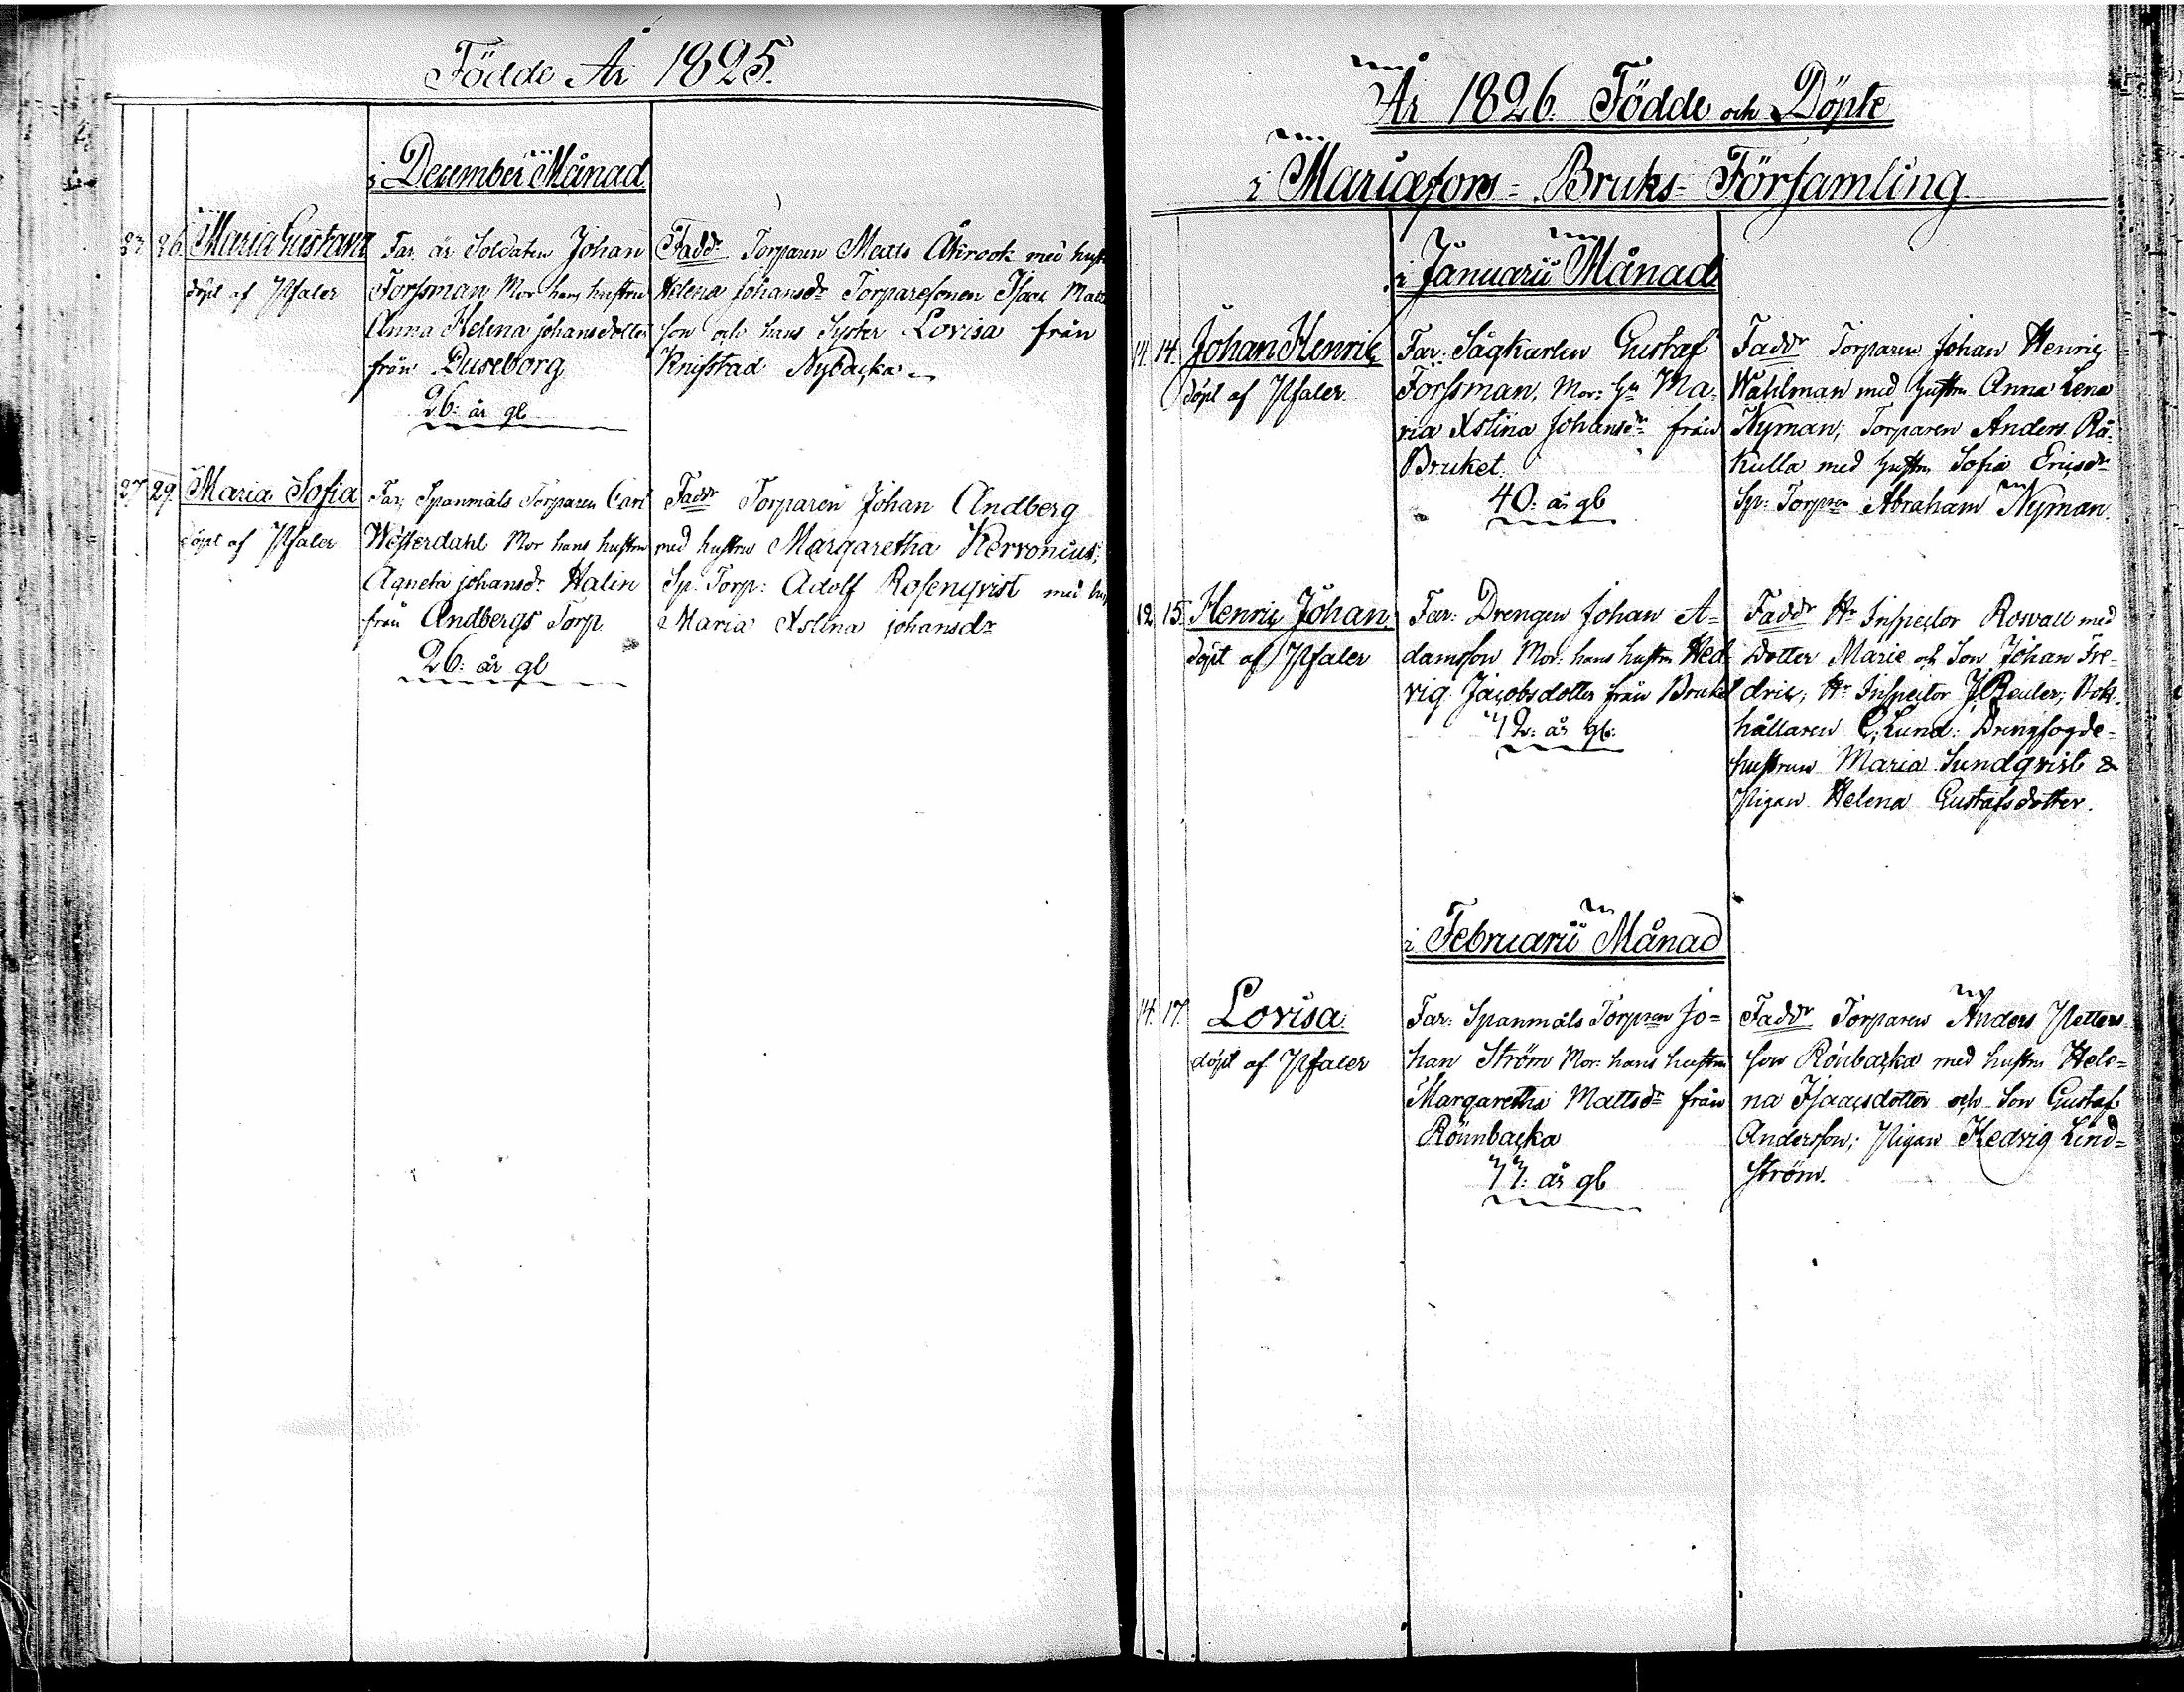 Födde År 1825.
i December Månad
23. 26. Maria Gustava
döpt af Pfaler
Far är Soldaten Johan
Forssman Mor hans hustru
Anna Helena Johansdotter
från Duseborg
26: år gl
Fadd:r Torparen Matts Åkrook med hust
Helena Johansd:r Torparesonen Isaac Mats
son och hans Syster Lovisa från
Knifstad Nybacka
27 29. Maria Sofia
döpt af Pfaler
Far, Spanmåls Torparen Carl
Westerdahl Mor hans hustru
Agneta Johansd:r Halin
från Andbergs Torp
26: år gl
Fadd:r Torparen Johan Andberg
med hustru Margaretha Kervonius;
Sp. Torp: Adolf Rosenqvist med hu
Maria Xstina Johansd:r
År 1826. Födde och Döpte
i Mariæfors= Bruks= Församling
i Januarii Månad
14. 14. Johan Henric
döpt af Pfaler
Far: Sågkarlen Gustaf
Forssman, Mor: Hu Ma-
ria Xstina Johansd:r från
Bruket.
40: år gl
Fadd:r Torparen Johan Henric
Wahlman med hustru Anna Lena
Nyman; Torparen Anders Rå-
kulla med hustru Sofia Ericsd:r
Sp: Torpren Abraham Nyman.
12. 15. Henric Johan
döpt af Pfaler
Far: Drengen Johan A=
damsson Mor: hans hustru Hed-
vig Jacobsdotter från Bruket
42: år gl:
Fadd:r H:r Inspector Roswall med
Dotter Marie och Son Johan Fre-
dric; H:r Inspector J. Reuler; Bok-
hållaren C. Lund: Drengfogde-
hustrun Maria Sundqvist &
Pigan Helena Gustafsdotter.
i Februarii Månad
14. 17. Lovisa
döpt af Pfaler
Far: Spanmåls Torpren Jo=
han Ström Mor: hans hustru
Margaretha Mattsd:r från
Rönnbacka
44: år gl
Fadd:r Torparen Anders Petters
son Rönbacka med hustru Hele=
na Isaacsdotter och Son Gustaf
Andersson; Pigan Hedvig Lind=
ström.